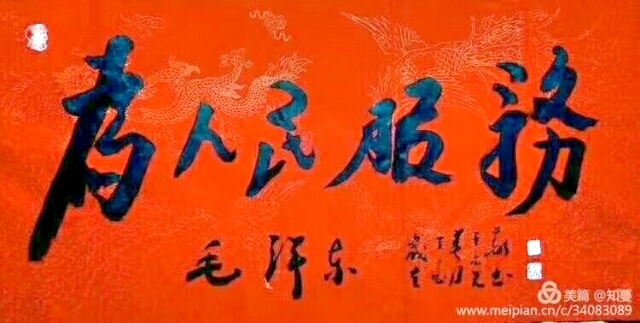 为人民服務
毛泽东
美篇 @知蔓
www.meipian.cn/c/34083089